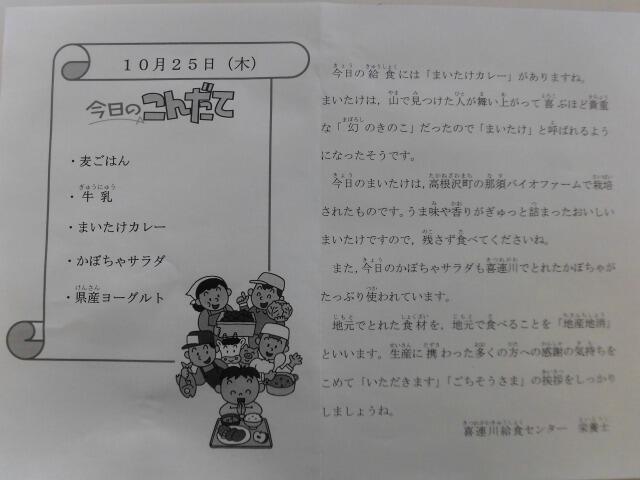 10月25日（木）
今日のこんだて
・麦ごはん
・牛乳
・まいたけカレー
・かぼちゃサラダ
・県産ヨーグルト
今日の給食には「まいたけカレー」がありますね。
まいたけは，山で見つけた人が舞い上がって喜ぶほど貴重
な「幻のきのこ」だったので「まいたけ」と呼ばれるよう
になったそうです。
今日のまいたけは，高根沢町の那須バイオファームで栽培
されたものです。うま味や香りがぎゅっと詰まったおいしい
まいたけですので，残さず食べてくださいね。
また，今日のかぼちゃサラダも喜連川でとれたかぼちゃが
たっぷり使われています。
地元でとれた食材を，地元で食べることを「地産地消」
といいます。生産に携わった多くの方への感謝の気持ちを
こめて「いただきます」「ごちそうさま」の挨拶をしっかり
しましょうね。
喜連川給食センター　栄養士